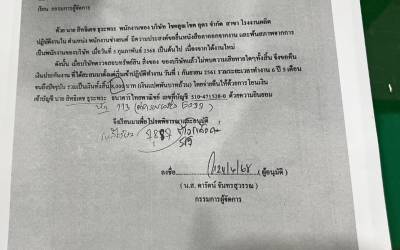 เรียน กรรมการผู้จัดการ
ด้วย นาย สิทธิเดช ธุระพระ พนักงานของ บริษัท โชคอุดร สาขา โรงงานผลิต
ปฏิบัติงานใน ตำแหน่ง พนักงานช่างยนต์ มีความประสงค์ขอยื่นหนังสือลาออกจากพนักงาน และพ้นสภาพจากการ
เป็นพนักงานของบริษัท เมื่อวันที่ 5 กุมภาพันธ์ 2568 เป็นต้นไป เนื่องจากได้งานใหม่
ดังนั้น เมื่อบริษัทตรวจสอบทรัพย์สิน สิ่งของ ของบริษัทแล้วไม่พบความเสียหายใดๆทั้งสิ้น จึงขอคืน
เงินประกันงาน ที่ได้สะสมมาตั้งแต่เริ่มเข้าปฏิบัติงาน วันที่ 1 กันยายน 2561 รวมระยะเวลาทำงาน 6 ปี 5 เดือน
จนถึงปัจจุบัน รวมเป็นเงินทั้งสิ้น 8,000 บาท (เงินแปดพันบาทถ้วน) โดยจ่ายคืนให้ด้วยการโอนเงิน
เข้าบัญชี นาย สิทธิเดช ธุระพระ ธนาคารไทยพาณิชย์ เลขที่บัญชี 510-471538-0 ด้วยความยินยอม
หัก 113
จึงเรียนมาเพื่อโปรดพิจารณาและอนุมัติ
7,887
ลงชื่อ (ผู้อนุมัติ)
( น.ส. ดารัตน์ จันทรสุวรรณ )
กรรมการผู้จัดการ